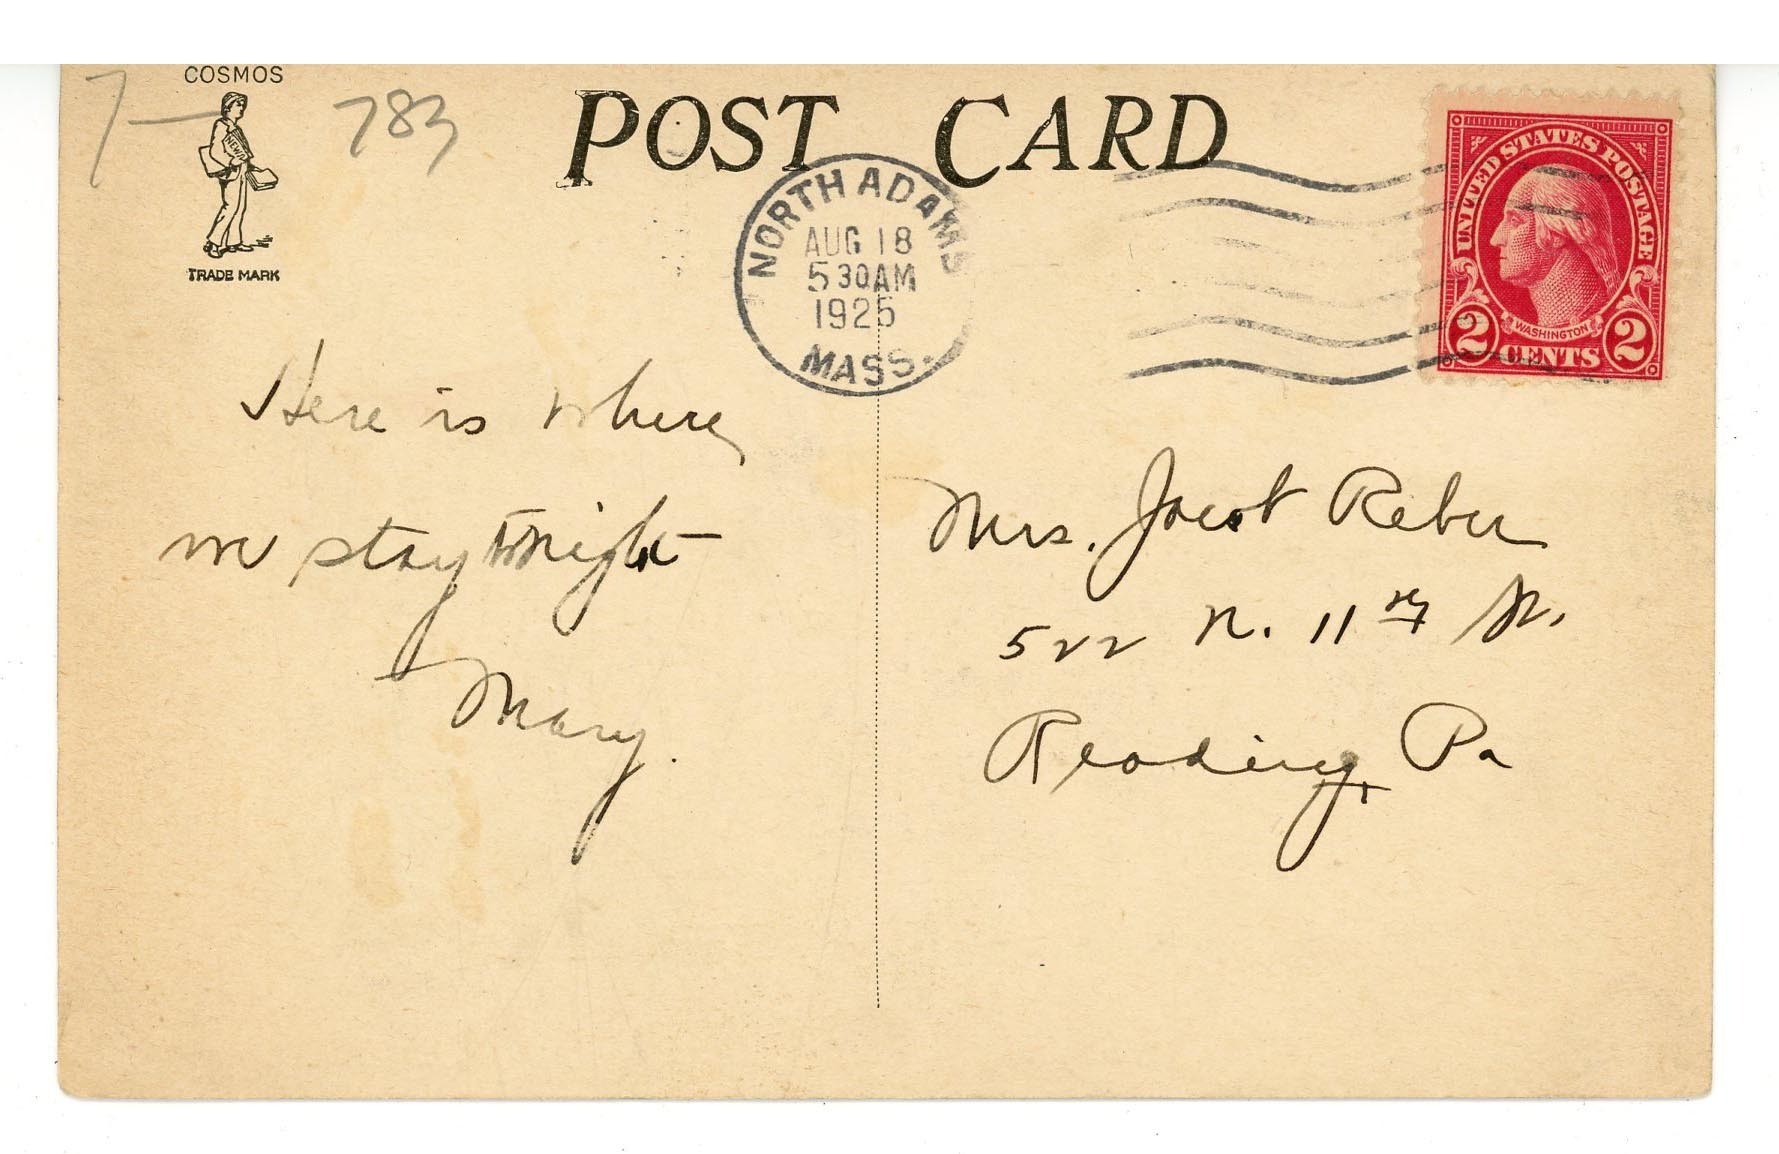 COSMOS
7— 783
TRADE MARK
POST CARD
NORTH ADAMS
AUG 18
5 30 AM
1925
MASS.
UNITED STATES POSTAGE
WASHINGTON
2 CENTS 2
Here is where
we stay tonight
Mary.
Mrs. Jacob Reber
522 N. 11th St.
Reading, Pa